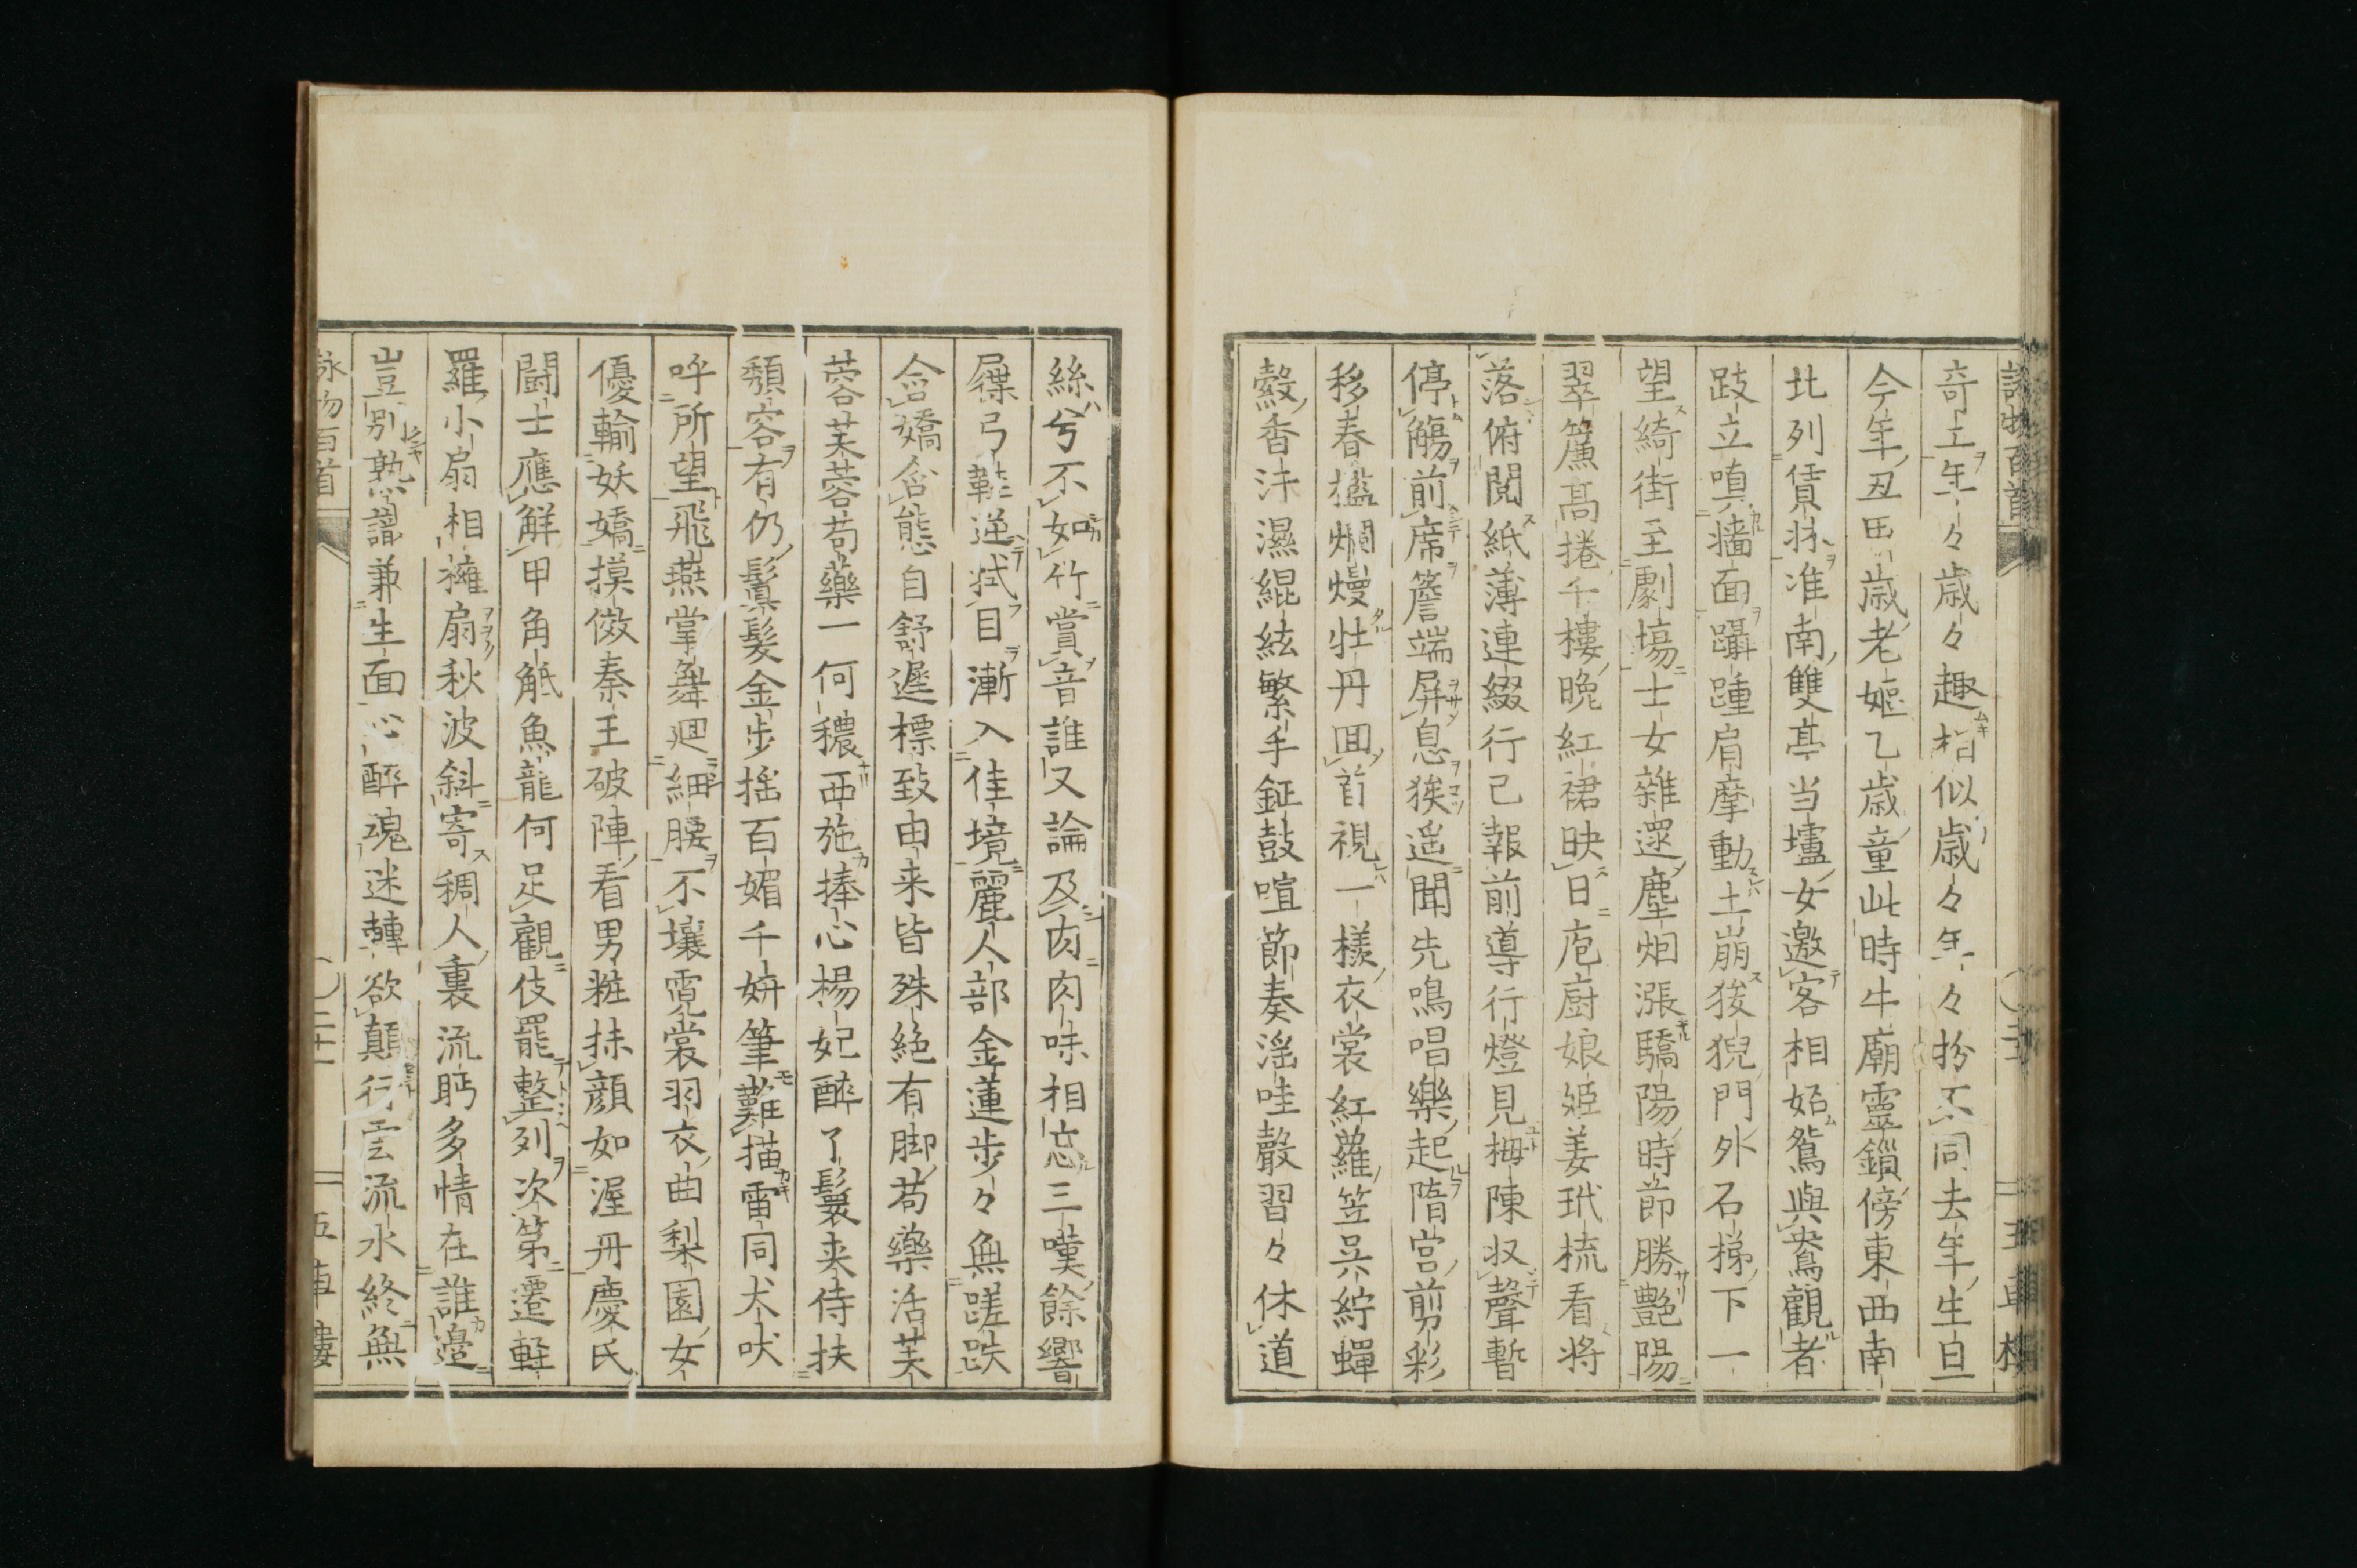 詠物百首
五車樓
奇工年々歳々趣相似歳々年々扮不同去年生旦
今年丑西歳老嫗乙歳童此時牛廟靈鎖傍東西南
北列賃牀准南雙亭当壚女邀客相妬鴛與鴦觀者
跂立嗔墻面躡踵肩摩動土崩狻猊門外石梯下一
望綺街至劇塲士女雜遝塵烟漲驕陽時節勝艷陽
翠簾髙捲千樓晩紅裙映日庖廚娘姫姜玳梳看将
落俯閲紙薄連綴行已報前導行燈見梅陳収聲暫
停觴前席簷端屏息竢遥聞先鳴唱樂起隋宮剪彩
移春檻爛熳牡丹囬首視一樣衣裳紅蘿笠呉紵蟬
縠香汗濕緄絃繁手鉦鼓喧節奏滛哇聲習々休道
絲兮不如竹賞音誰又論及肉肉味相忘三嘆餘響
屧弓鞋逆拭目漸入佳境麗人部金蓮步々無蹉跌
含嬌含態自舒遲標致由来皆殊絶有脚芍藥活芙
蓉芙蓉芍藥一何穠西施捧心楊妃醉了鬟来侍扶
頽容有仍鬒髮金步揺百媚千妍筆難描雷同犬吠
呼所望飛燕掌舞廻細腰不壤霓裳羽衣曲梨園女
優輸妖嬌摸倣秦王破陣看男粧抹顔如渥丹慶氏
闘士應觧甲角觝魚龍何足觀伎罷整列次第遷輕
羅小扇相擁扇秋波斜寄稠人裏流眄多情在誰邉
豈別熟諳兼生面心醉魂迷轉欲顛行雲流水終無
詠物百首
五車樓